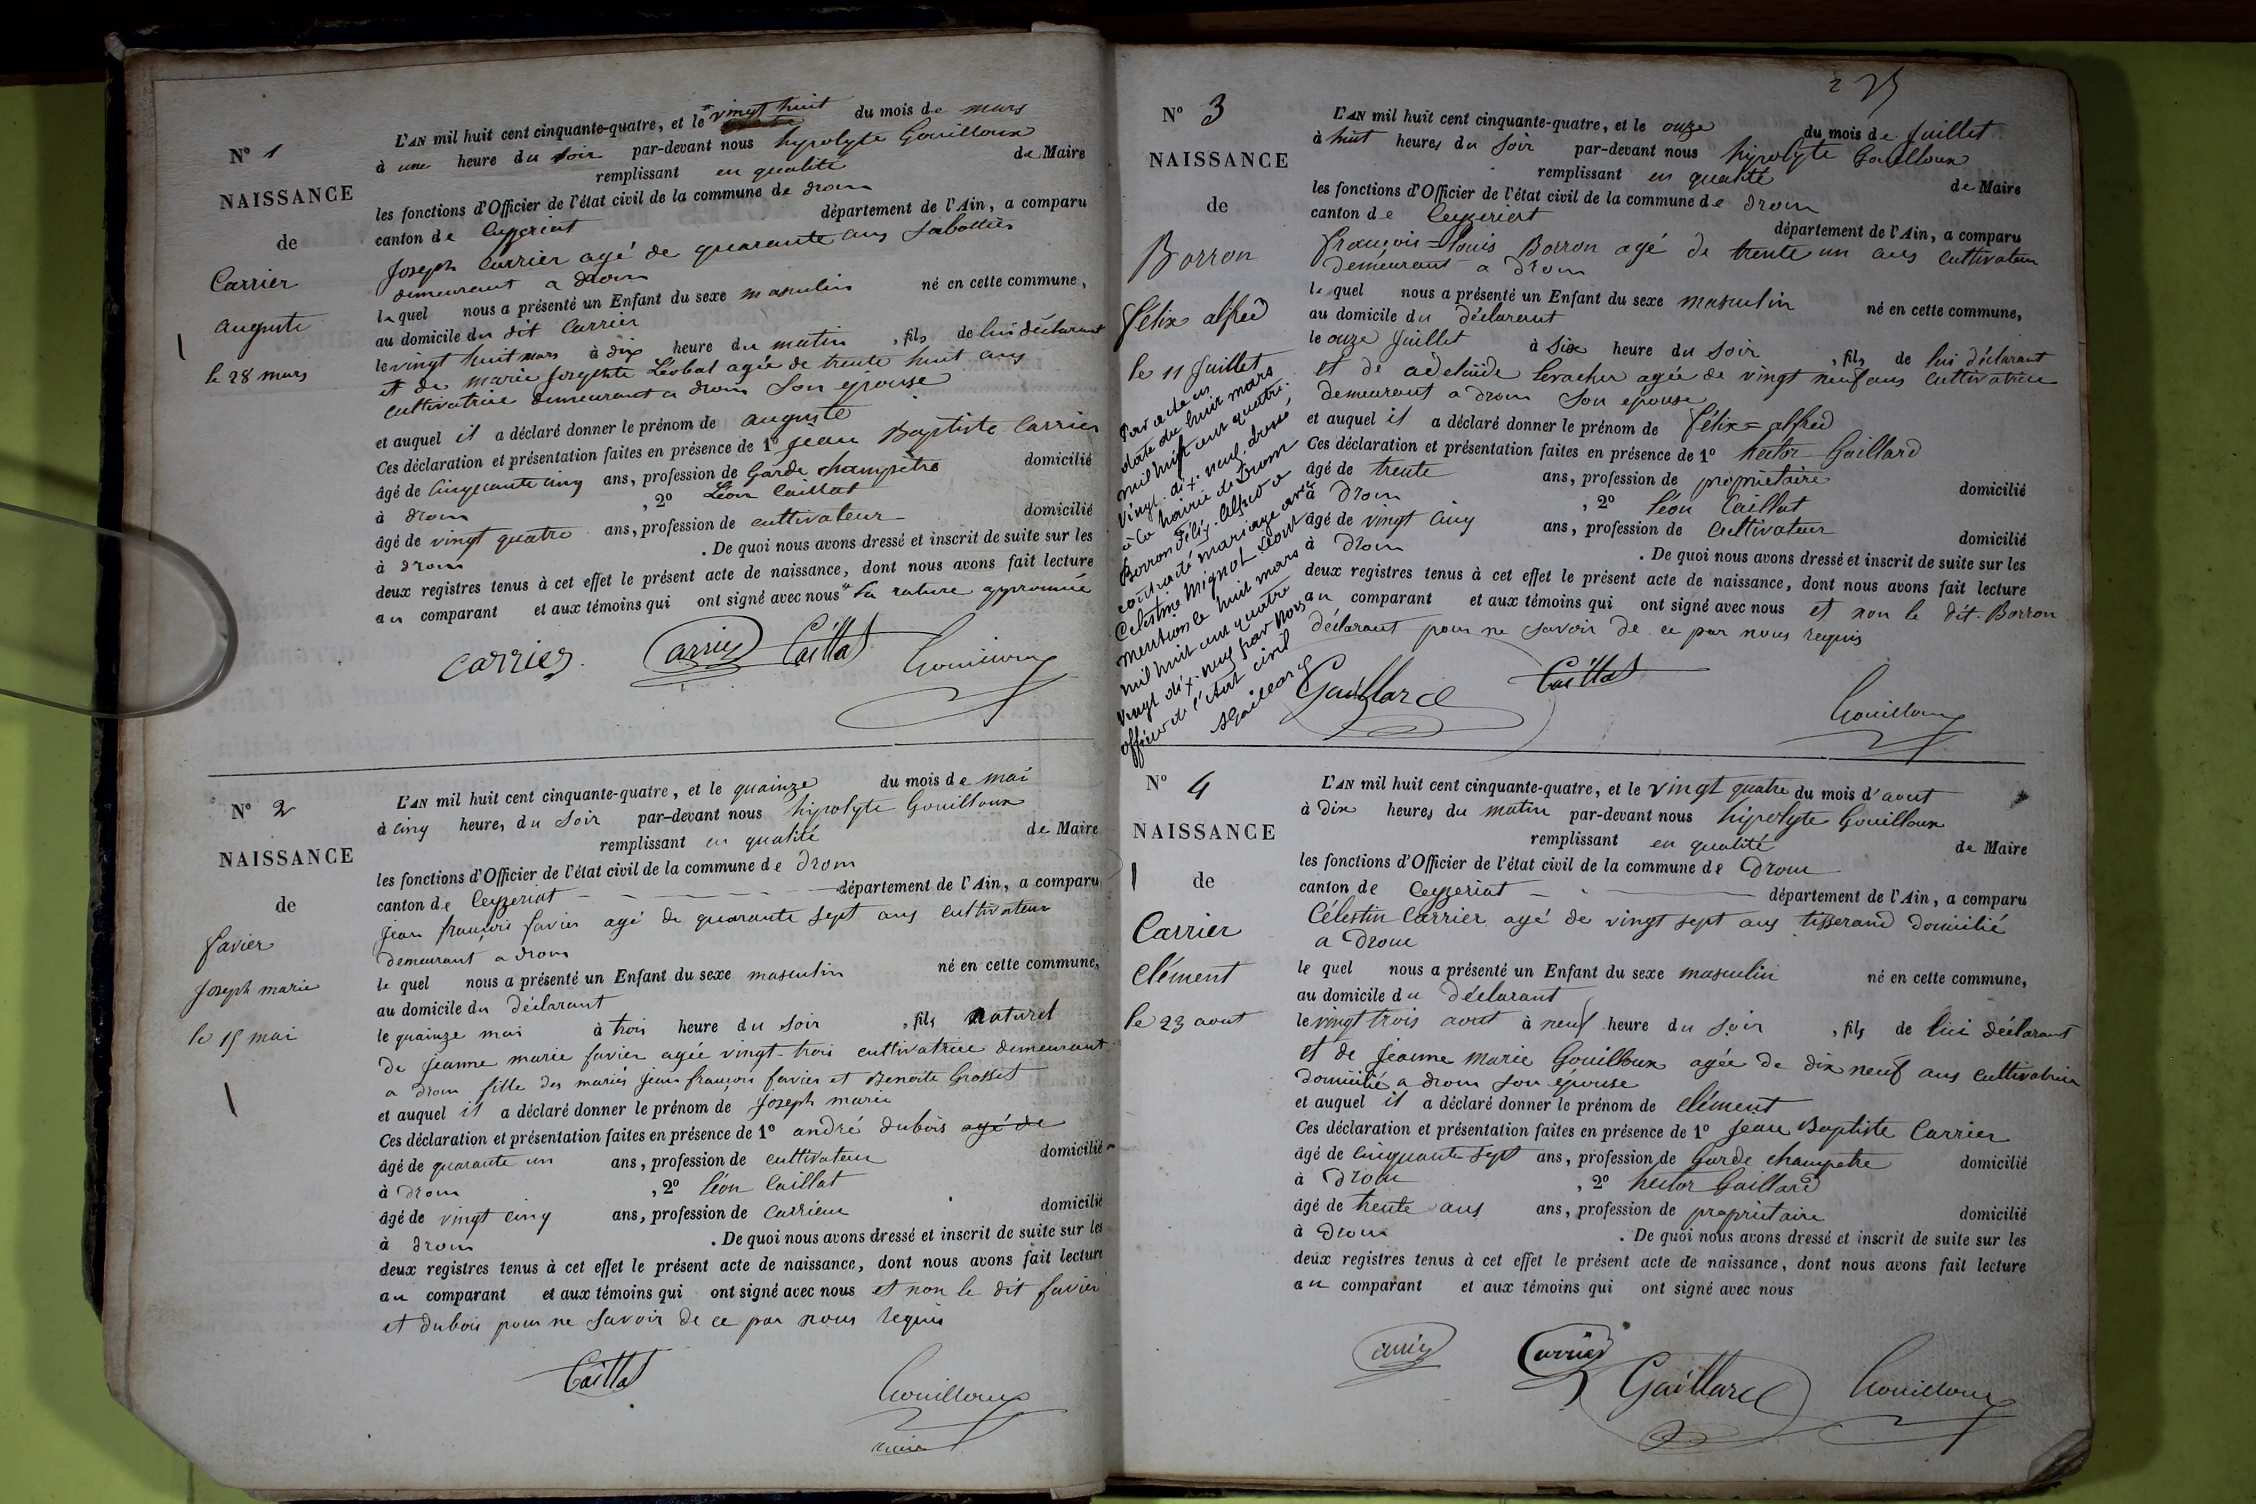 N° 1
NAISSANCE
de
Carrier
auguste
le 28 mars
L'AN mil huit cent cinquante-quatre, et le vingt huit du mois de mars
à une heure du soir par-devant nous hypolyte Gouilloux
remplissant en qualité de Maire
les fonctions d'Officier de l'état civil de la commune de drom
canton de Ceyzeriat département de l'Ain, a comparu
Joseph Carrier agé de quarante ans Sabottier
demeurant a drom
lequel nous a présenté un Enfant du sexe masculin né en cette commune,
au domicile du dit Carrier
le vingt huit mars à dix heure du matin, fils de lui déclarant
et de marie Josephte agée de trente huit ans
cultivatrice demeurant a drom Son epouse
et auquel il a déclaré donner le prénom de auguste
Ces déclaration et présentation faites en présence de 1° jean Baptiste Carrier
âgé de Cinquante cinq ans, profession de Garde champètre domicilié
à drom, 2° Léon Caillat
âgé de vingt quatre ans, profession de cultivateur domicilié
à drom. De quoi nous avons dressé et inscrit de suite sur les
deux registres tenus à cet effet le présent acte de naissance, dont nous avons fait lecture
au comparant et aux témoins qui ont signé avec nous la rature approuvée
carrier Carrier Caillat Gouilloux
N° 2
NAISSANCE
de
favier
Joseph marie
le 15 mai
L'AN mil huit cent cinquante-quatre, et le quainze du mois de mai
à cinq heures du Soir par-devant nous hypolyte Gouilloux
remplissant en qualité de Maire
les fonctions d'Officier de l'état civil de la commune de drom
canton de Ceyzeriat département de l'Ain, a comparu
Jean françois favier agé de quarante sept ans cultivateur
demeurant a drom
le quel nous a présenté un Enfant du sexe masculin né en cette commune,
au domicile du déclarant
le quainze mai à trois heure du soir, fils naturel
de jeanne marie favier agée vingt-trois cultivatrice demeurant
a drom fille des mariés Jean françois favier et Benoite Grosset
et auquel il a déclaré donner le prénom de Joseph marie
Ces déclaration et présentation faites en présence de 1° andré dubois agé de
âgé de quarante un ans, profession de cultivateur domicilié
à drom, 2° Léon Caillat
âgé de vingt cinq ans, profession de Carrieur domicilié
à drom. De quoi nous avons dressé et inscrit de suite sur les
deux registres tenus à cet effet le présent acte de naissance, dont nous avons fait lecture
au comparant et aux témoins qui ont signé avec nous et non le dit favier
et dubois pour ne Savoir de ce par nous requis
Caillat Gouilloux
maire
N° 3
NAISSANCE
de
Borron
félix alfred
le 11 Juillet
Par acte en
date du huit mars
mil huit cent quatre-
vingt-dix-neuf, dressé
à la Mairie de Drom
Borron Félix-Alfred a
contracté mariage avec
Célestine Mignot
Mention le huit mars
mil huit cent quatre
vingt dix-neuf par nous
officier de l'état civil
Gaillard
L'AN mil huit cent cinquante-quatre, et le onze du mois de Juillet
à huit heures du Soir par-devant nous hypolyte Gouilloux
remplissant en qualité de Maire
les fonctions d'Officier de l'état civil de la commune de drom
canton de Ceyzeriat département de l'Ain, a comparu
françois=Louis Borron agé de trente un ans cultivateur
demeurant a drom
le quel nous a présenté un Enfant du sexe masculin né en cette commune,
au domicile du déclarant
le onze Juillet à Six heure du Soir, fils de lui déclarant
et de adelaïde levacher agée de vingt neuf ans Cultivatrice
demeurant a drom Son epouse
et auquel il a déclaré donner le prénom de félix=alfred
Ces déclaration et présentation faites en présence de 1° hector Gaillard
âgé de trente ans, profession de proprietaire domicilié
à drom, 2° Léon Caillat
âgé de vingt cinq ans, profession de cultivateur domicilié
à drom. De quoi nous avons dressé et inscrit de suite sur les
deux registres tenus à cet effet le présent acte de naissance, dont nous avons fait lecture
au comparant et aux témoins qui ont signé avec nous et non le dit-Borron
déclarant pour ne Savoir de ce par nous requis
Gaillard Caillat Gouilloux
N° 4
NAISSANCE
de
Carrier
clément
le 23 aout
L'AN mil huit cent cinquante-quatre, et le vingt quatre du mois d'aout
à Dix heures du matin par-devant nous hipolyte Gouilloux
remplissant en qualité de Maire
les fonctions d'Officier de l'état civil de la commune de Drom
canton de Ceyzeriat département de l'Ain, a comparu
Célestin Carrier agé de vingt sept ans tisserand domicilié
a Drom
le quel nous a présenté un Enfant du sexe masculin né en cette commune,
au domicile du déclarant
le vingt trois aout à neuf heure du soir, fils de lui déclarant
et de jeanne marie Gouilloux agée de dix neuf ans cultivatrice
domicilié a drom son épouse
et auquel il a déclaré donner le prénom de clément
Ces déclaration et présentation faites en présence de 1° Jean Baptiste Carrier
âgé de Cinquante sept ans, profession de Garde champetre domicilié
à Drom, 2° hector Gaillard
âgé de trente ans ans, profession de proprietaire domicilié
à drom. De quoi nous avons dressé et inscrit de suite sur les
deux registres tenus à cet effet le présent acte de naissance, dont nous avons fait lecture
au comparant et aux témoins qui ont signé avec nous
Carrier Carrier Gaillard Gouilloux